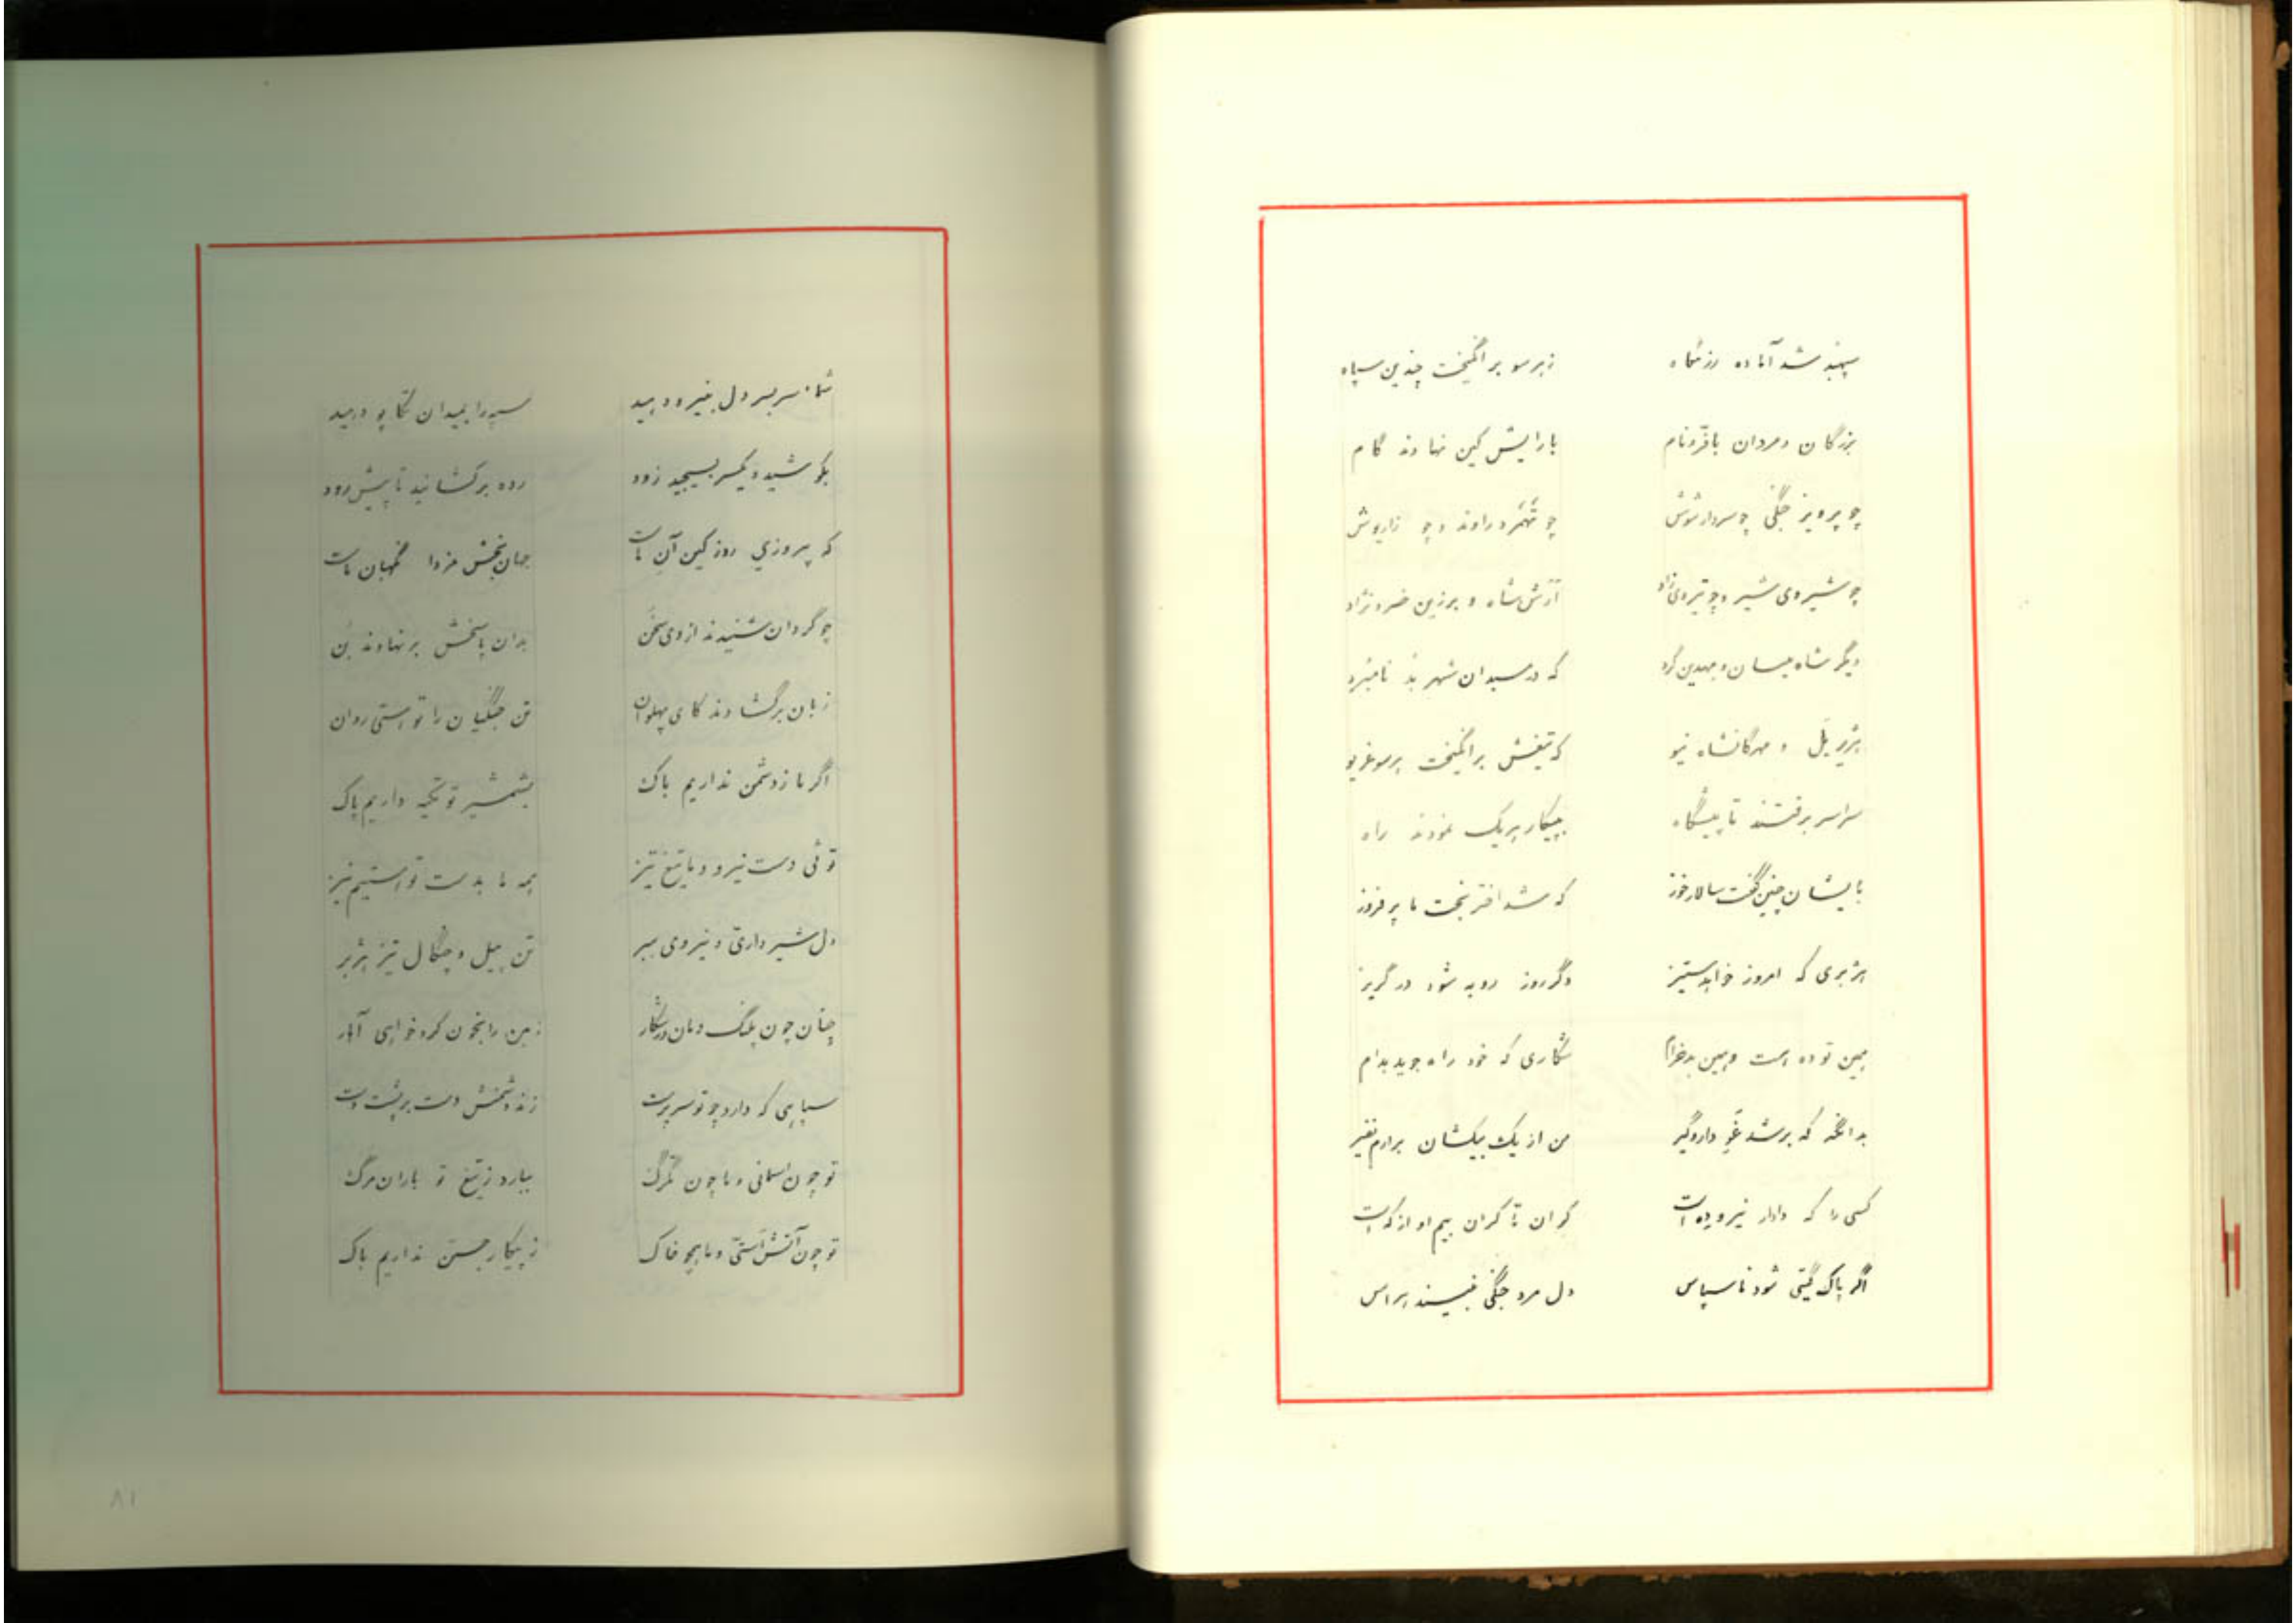 سپهبد شد آماده رزمگاه    ز هر سو برانگیخت چندین سپاه
بزرگان و مردان با فرّ و نام    بارایش کین نهادند گام
چو پرویز جنگی چو سردار شوش    چو و چو زاریوش
چو شیروی شیر و چو    آرش شاه و برزین خسرو نژاد
دگر شاه میسان و بهدین گرد    که در میدان شهر بُد نامبرد
هژیر یل و مهرگانشاه نیو    که تیغش برانگیخت هر سو غریو
سراسر برفتند تا پیشگاه    بپیکار هر یک نمودند راه
بایشان چنین گفت سالار خوز    که شد اختر بخت ما بر فروز
هژبری که امروز خواهد ستیز    دگر روز روبه شود در گریز
همین توده است و همین بدخرام    شکاری که خود راه جوید بدام
بدانگه که برشد غَوِ داروگیر    من از یک بیکشان برارم نفیر
کسی را که دادار نیرو ده است    کران تا کران بیم او از که است
اگر پاک گیتی شود ناسپاس    دل مرد جنگی نبیند هراس
شما سربسر دل بنیرو دهید    سپه را بمیدان تکاپو دهید
بکوشید و یکسر بسیجید زود    رده برکشانید تا پیش رود
که پیروزی روز کین آن ماست    جهان بخش مزدا نگهبان ماست
چو گردان شنیدند از وی سخُن    بدان پاسخش بر نهادند بُن
زبان برگشادند کای پهلوان    تن جنگیان را تو استی روان
اگر ما ز دشمن نداریم باک    بشمشیر تو تکیه داریم پاک
توئی دست نیرو و ما تیغ تیز    همه ما بدست تو استیم نیز
دل شیر داریّ و نیروی ببر    تن پیل و چنگال تیز هژبر
چنان چون پلنگ دمان در شکار    زمین را بخون کرد خواهی آهار
سپاهی که دارد چو تو سرپرست    زند دشمنش دست بر پشت دست
تو چون آسمانی و ما چون تگرگ    ببارد ز تیغ تو باران مرگ
تو چون آتش استیّ و ما همچو خاک    ز پیکار جستن نداریم باک
۸۱